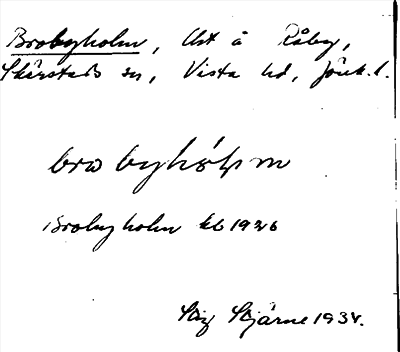 Brobyholm, Ut å Råby,
Skärstads sn, Vista hd, Jönk. l.
brobyhål̥m
Brobyholm kb 1926
Stig Stjärne 1934.